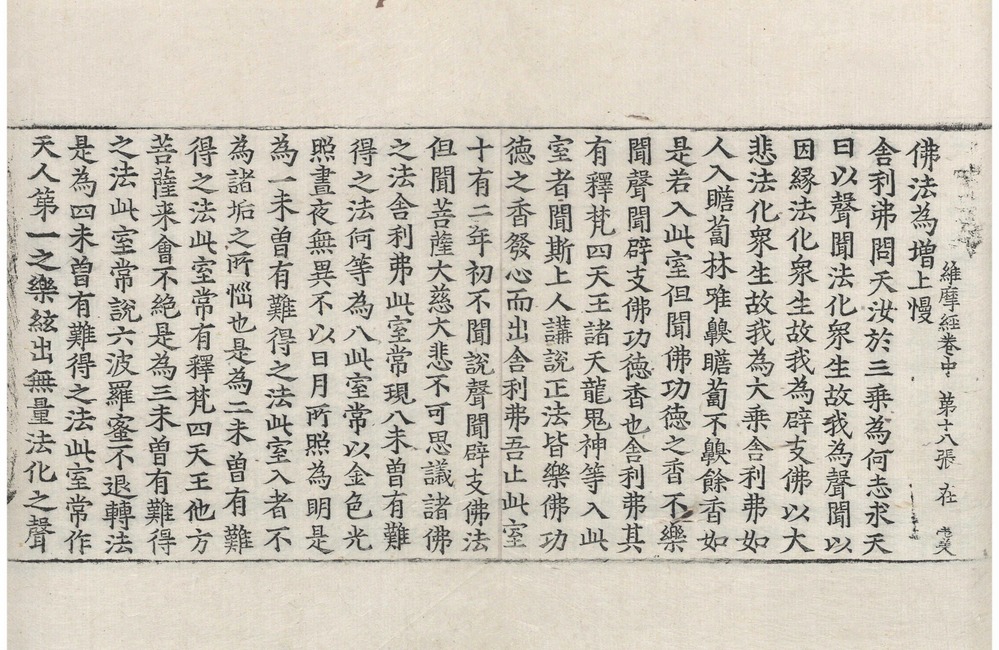 維摩經卷中 第十八張 在
佛法為增上慢
舍利弗問天汝於三乘為何志求天
曰以聲聞法化衆生故我為聲聞以
因緣法化衆生故我為辟支佛以大
悲法化衆生故我為大乘舍利弗如
人入瞻蔔林唯齅瞻蔔不齅餘香如
是若入此室但聞佛功德之香不樂
聞聲聞辟支佛功德香也舍利弗其
有釋梵四天王諸天龍鬼神等入此
室者聞斯上人講說正法皆樂佛功
德之香發心而出舍利弗吾止此室
十有二年初不聞說聲聞辟支佛法
但聞菩薩大慈大悲不可思議諸佛
之法舍利弗此室常現八未曾有難
得之法何等為八此室常以金色光
照晝夜無異不以日月所照為明是
為一未曾有難得之法此室入者不
為諸垢之所惱也是為二未曾有難
得之法此室常有釋梵四天王他方
菩薩来會不絕是為三未曾有難得
之法此室常說六波羅蜜不退轉法
是為四未曾有難得之法此室常作
天人第一之樂絃出無量法化之聲